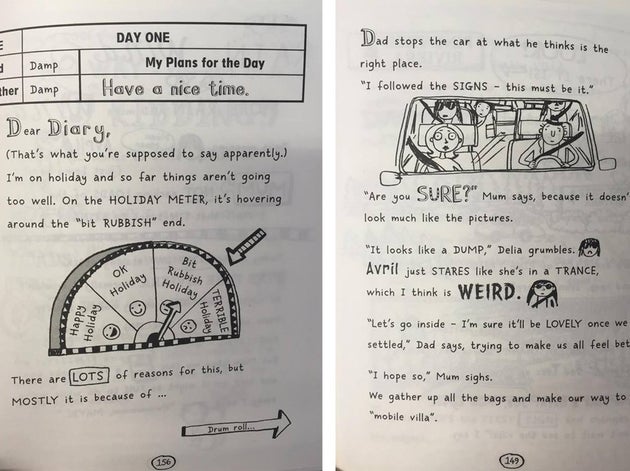 E
DAY ONE
d
Damp
My Plans for the Day
ther
Damp
Have a nice time.
Dear Diary,
(That's what you're supposed to say apparently.)
I'm on holiday and so far things aren't going
too well. On the HOLIDAY METER, it's hovering
around the "bit RUBBISH" end.
Happy Holiday
OK Holiday
Bit Rubbish Holiday
TERRIBLE Holiday
There are LOTS of reasons for this, but
MOSTLY it is because of ...
Drum roll...
156
Dad stops the car at what he thinks is the
right place.
"I followed the SIGNS - this must be it."
"Are you SURE?" Mum says, because it doesn'
look much like the pictures.
"It looks like a DUMP," Delia grumbles.
Avril just STARES like she's in a TRANCE,
which I think is WEIRD.
"Let's go inside - I'm sure it'll be LOVELY once we
settled," Dad says, trying to make us all feel bet
"I hope so," Mum sighs.
We gather up all the bags and make our way to
"mobile villa".
149